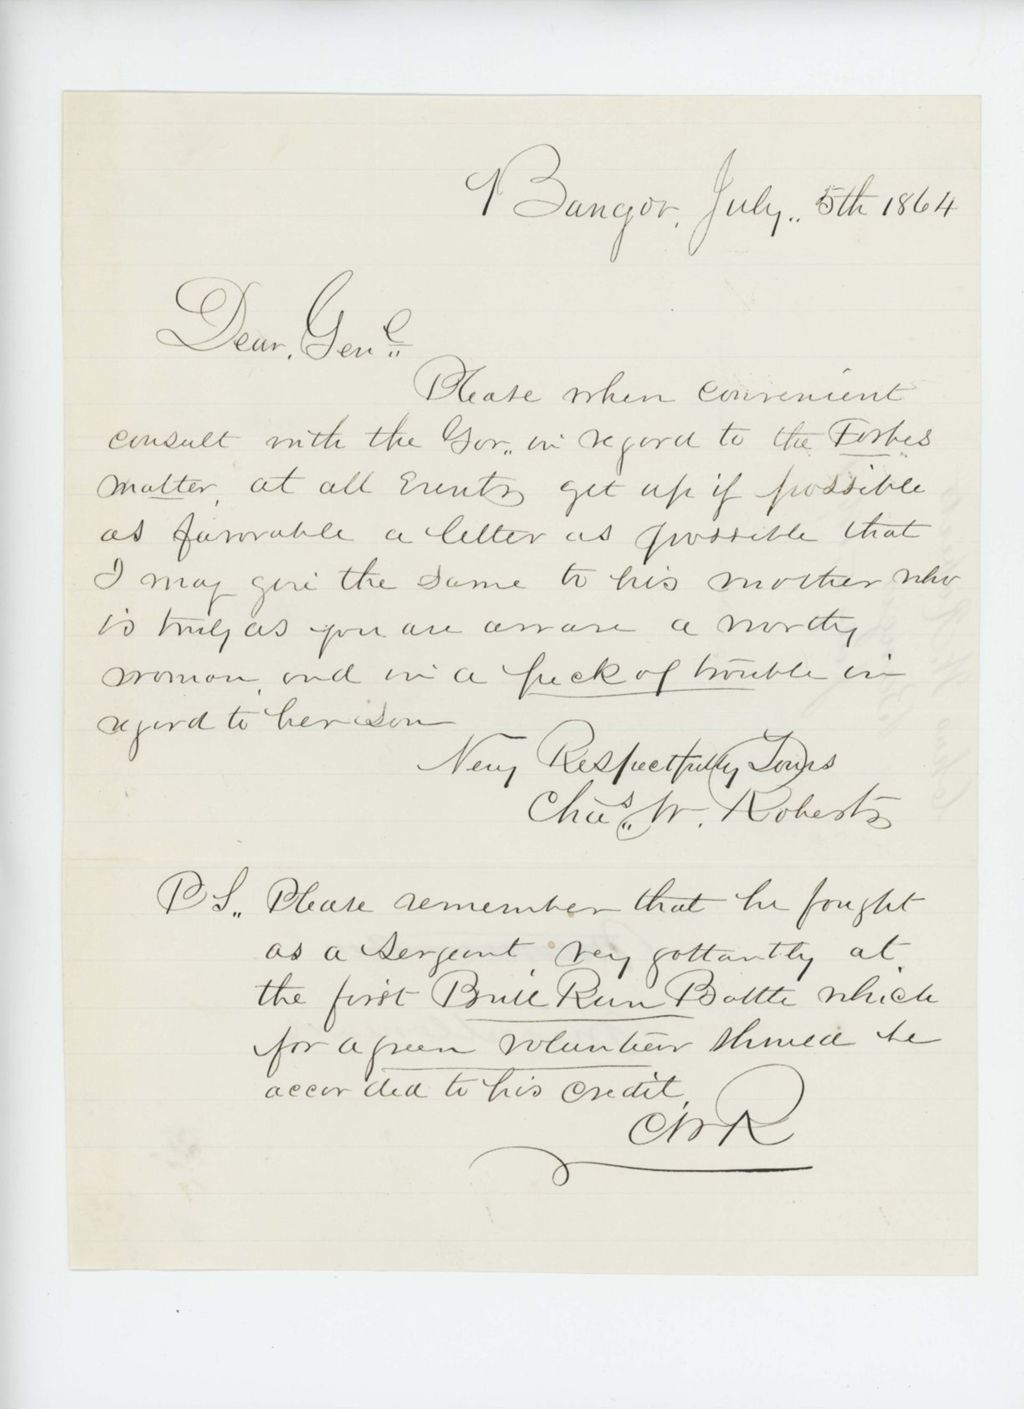 Bangor, July,, 5th 1864
Dear, Genl,,
Please when convenient
consult with the Gov,, in regard to the Forbes
matter, at all Events get up if possible
as favorable a letter as possible that
I may give the same to his mother who
is truly as you are aware a worthy
woman, and in a peck of trouble in
regard to her son
Very Respectfully Yours
Chas,, W. Roberts
P S,, Please remember that he fought
as a Sergeant very gallantly at
the first Bull Run Battle which
for a green volunteer should be
accorded to his credit,
C W R